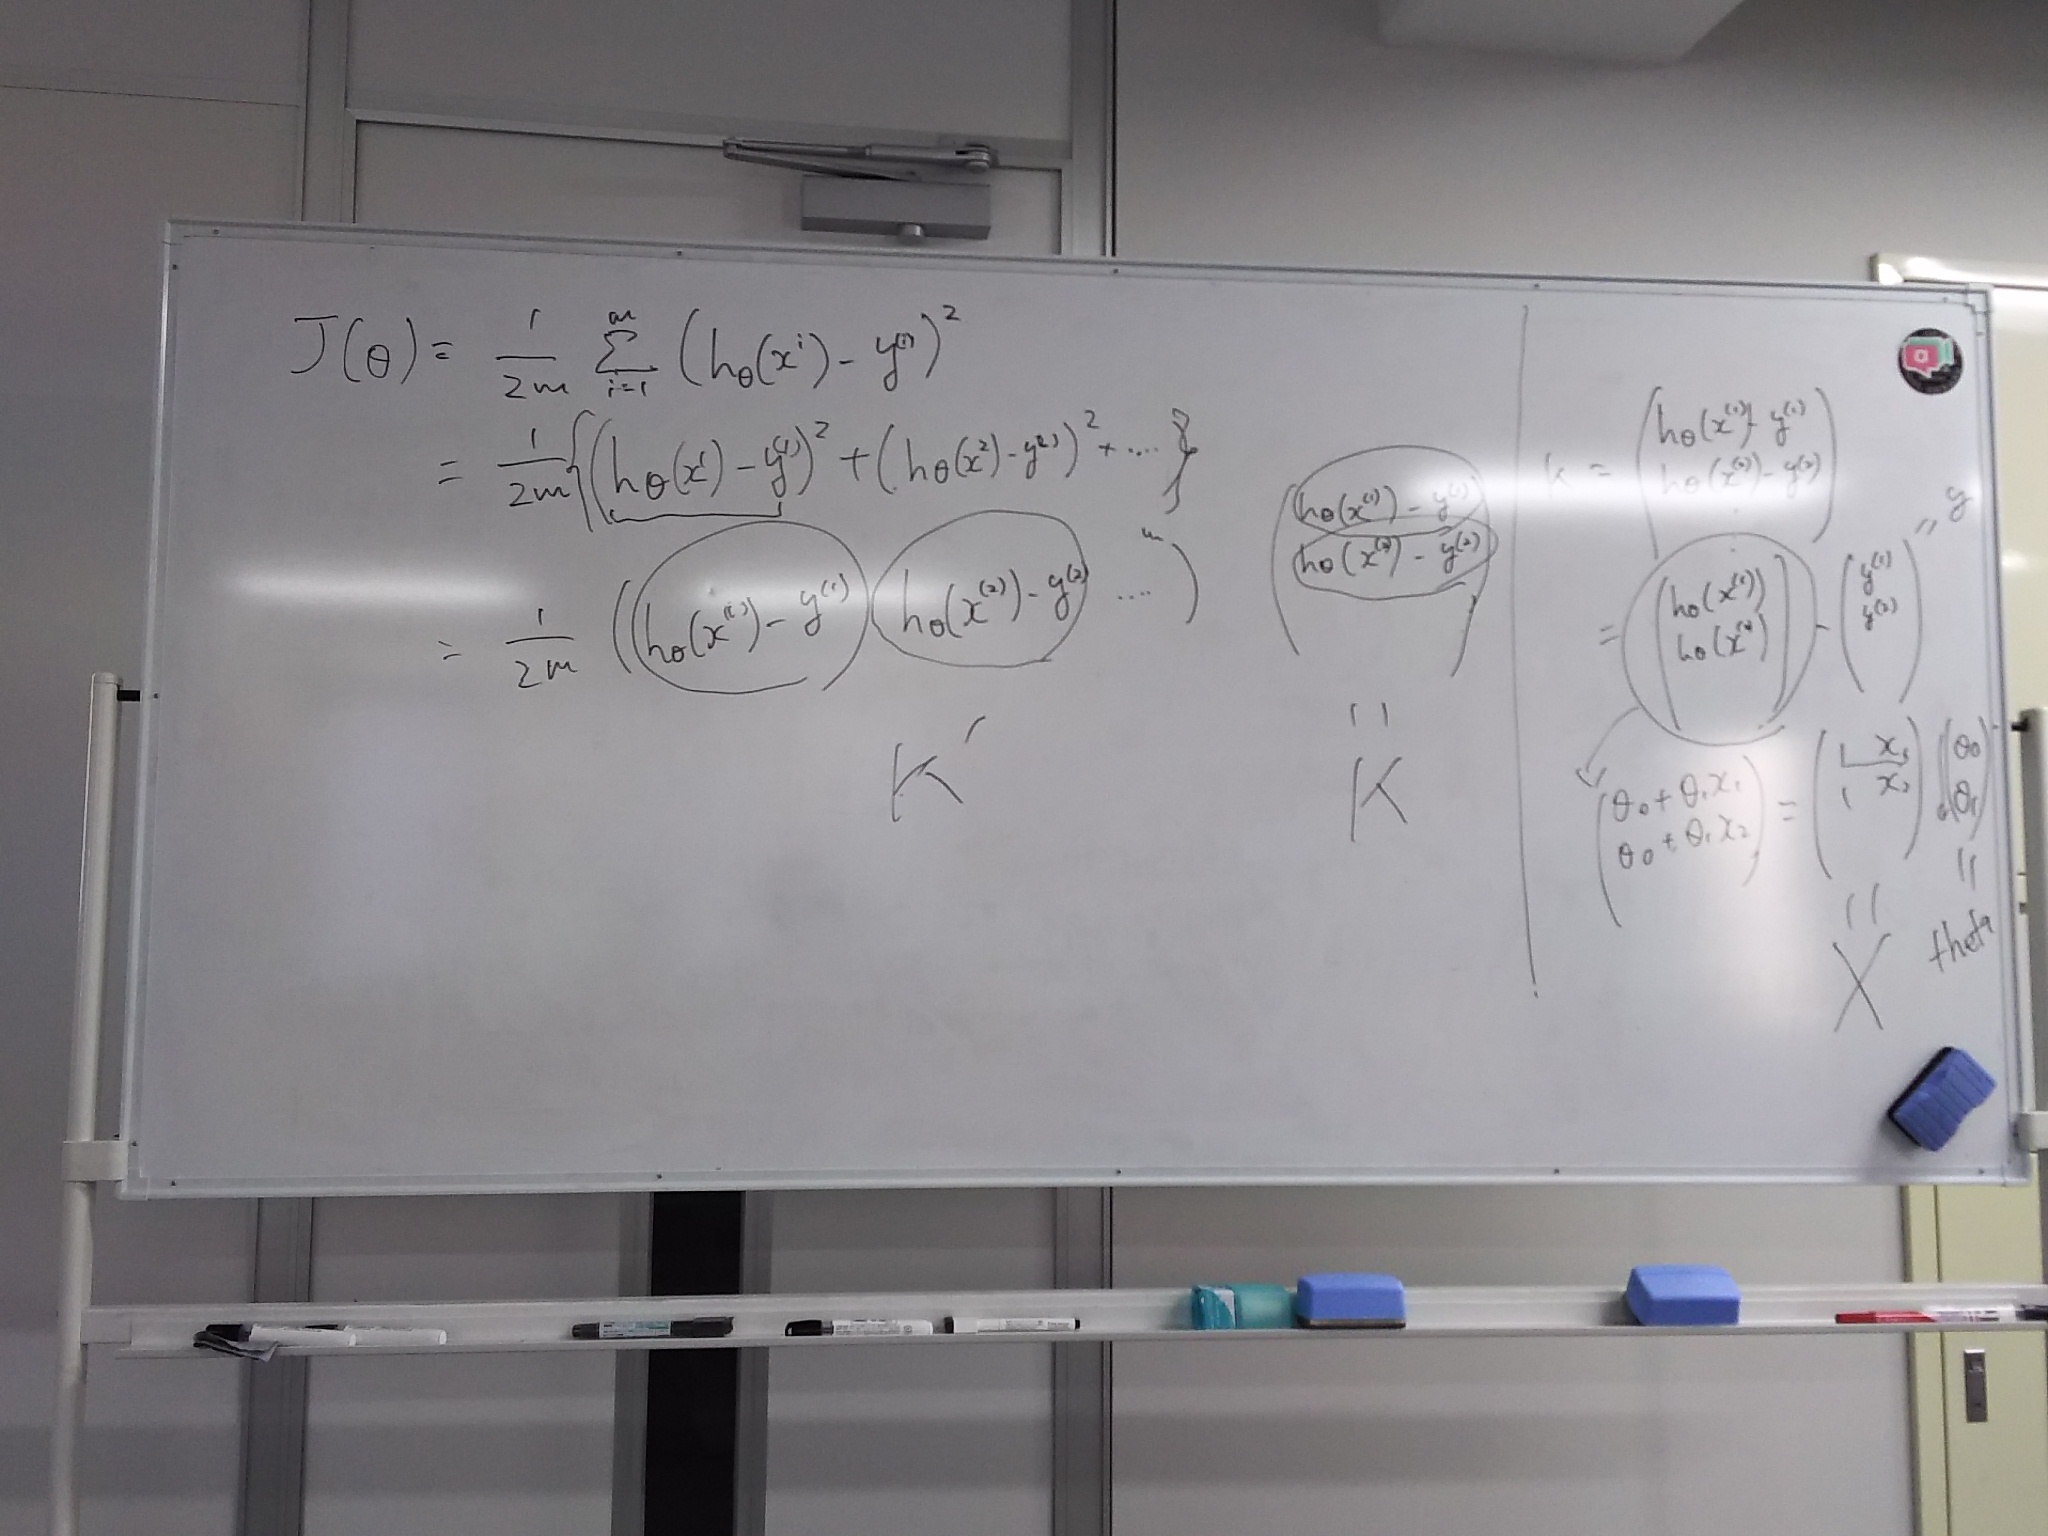 J(θ) = 1/2m Σ_{i=1}^{m} (hθ(x^i) - y^(i))^2
= 1/2m {(hθ(x^1) - y^(1))^2 + (hθ(x^2) - y^(2))^2 + .... }
= 1/2m (hθ(x^(1)) - y^(1) hθ(x^(2)) - y^(2) .... m)
(hθ(x^(1)) - y^(1)
hθ(x^(2)) - y^(2))
K'
"
K
K = (hθ(x^(1)) - y^(1)
hθ(x^(2)) - y^(2))
= (hθ(x^(1))
hθ(x^(2))) - (y^(1)
y^(2)) " y
(θ0 + θ1x1
θ0 + θ1x2) = (1 x1
1 x2) (θ0
θ1)
" "
X theta